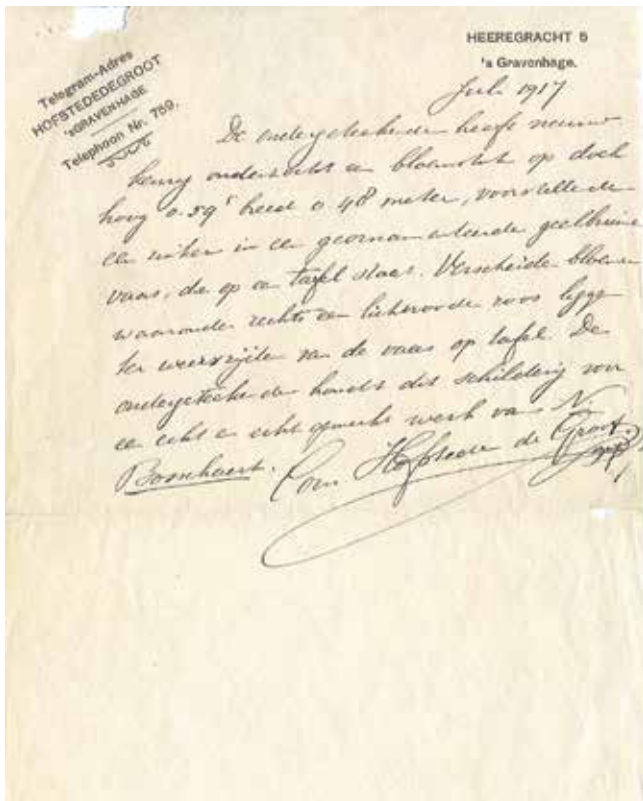 HEEREGRACHT 5
's Gravenhage.
Telegram-Adres
HOFSTEDEDEGROOT
'sGRAVENHAGE
Telephoon Nr. 759.
Juli 1917
De ondergeteekende heeft nauw-
keurig onderzocht een bloemstuk op doek
hoog 0.59⁵ breed 0.48 meter, voorstellende
een ruiker in een geornamenteerde geelbruine
vaas, die op een tafel staat. Verscheide bloemen
waaronder rechts een lichtroode roos liggen
ter weerszijden van de vaas op tafel. De
ondergeteekende houdt dit schilderij voor
een echt en echt gemerkt werk van N.
Corn Hofstede de Groot.